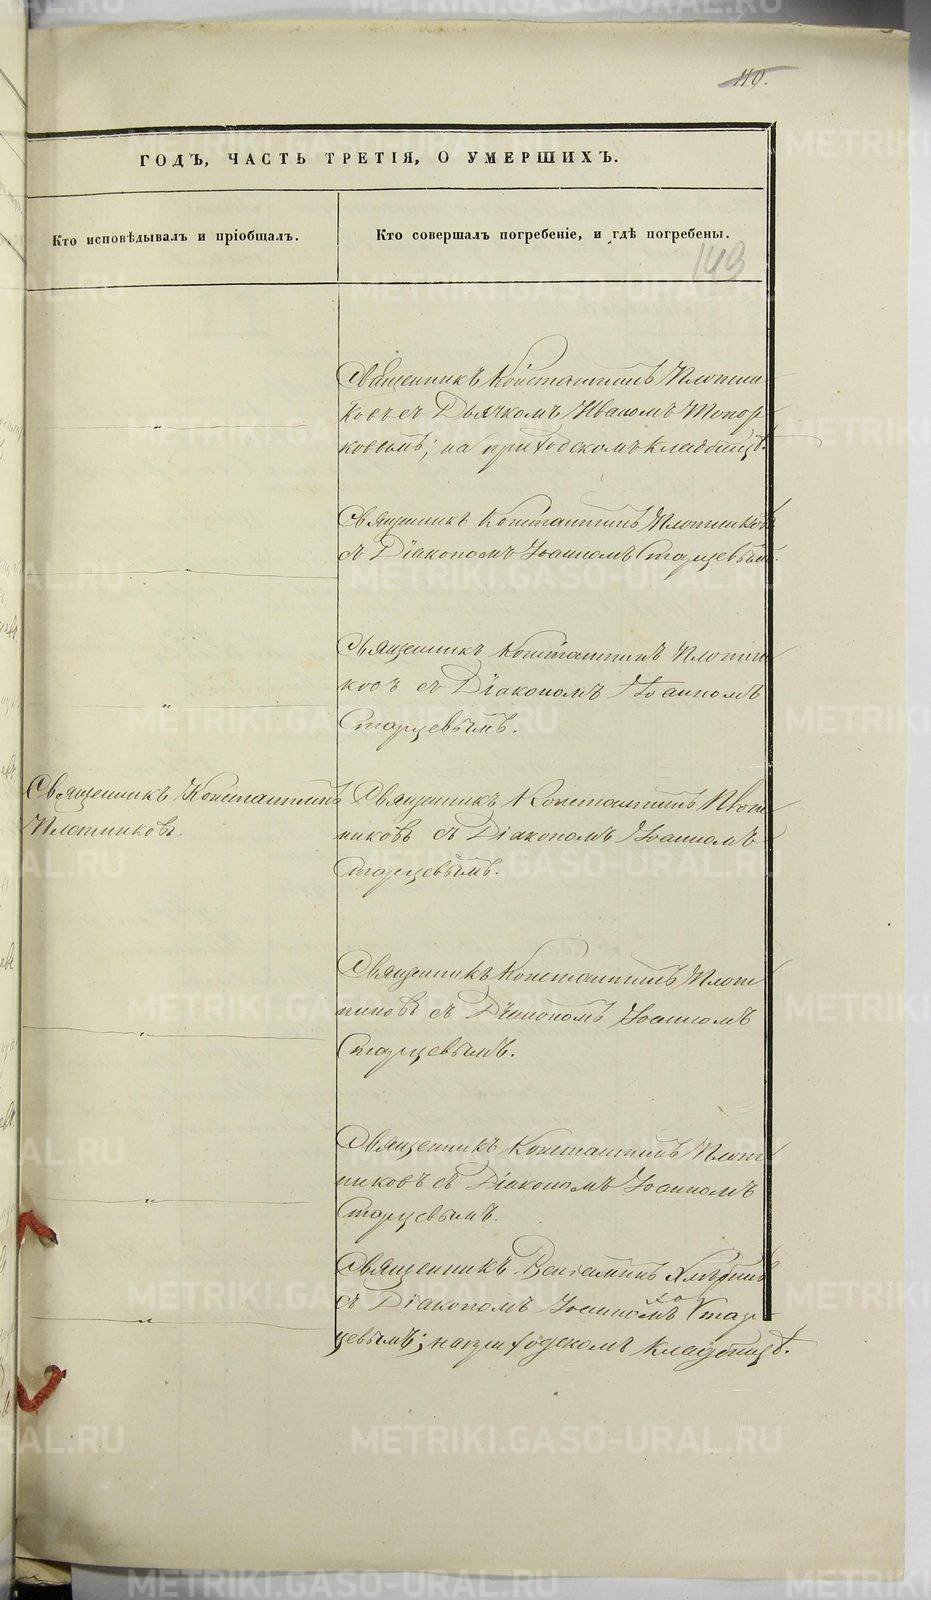 110.
ГОДЪ, ЧАСТЬ ТРЕТІЯ, О УМЕРШИХЪ.
Кто исповѣдывалъ и пріобщалъ.
Кто совершалъ погребеніе, и гдѣ погребены.
149
Священникъ Константинъ Плотни
ковъ съ Дьячкомъ Иваномъ Топор
ковымъ; на приходскомъ кладбищѣ.
Священникъ Константинъ Плотниковъ
съ Діакономъ Іоанномъ Старцевымъ.
Священникъ Константинъ Плотни
ковъ съ Діакономъ Іоанномъ
Старцевымъ.
Священникъ Константинъ
Плотниковъ.
Священникъ Константинъ Плот
никовъ съ Діакономъ Іоанномъ
Старцевымъ.
Священникъ Константинъ Плот
никовъ съ Діакономъ Іоанномъ
Старцевымъ.
Священникъ Константинъ Плот
никовъ съ Діакономъ Іоанномъ
Старцевымъ.
Священникъ Веніаминъ
съ Діакономъ Іоанномъ Стар
цевымъ; на приходскомъ кладбищѣ.
METRIKI.GASO-URAL.RU